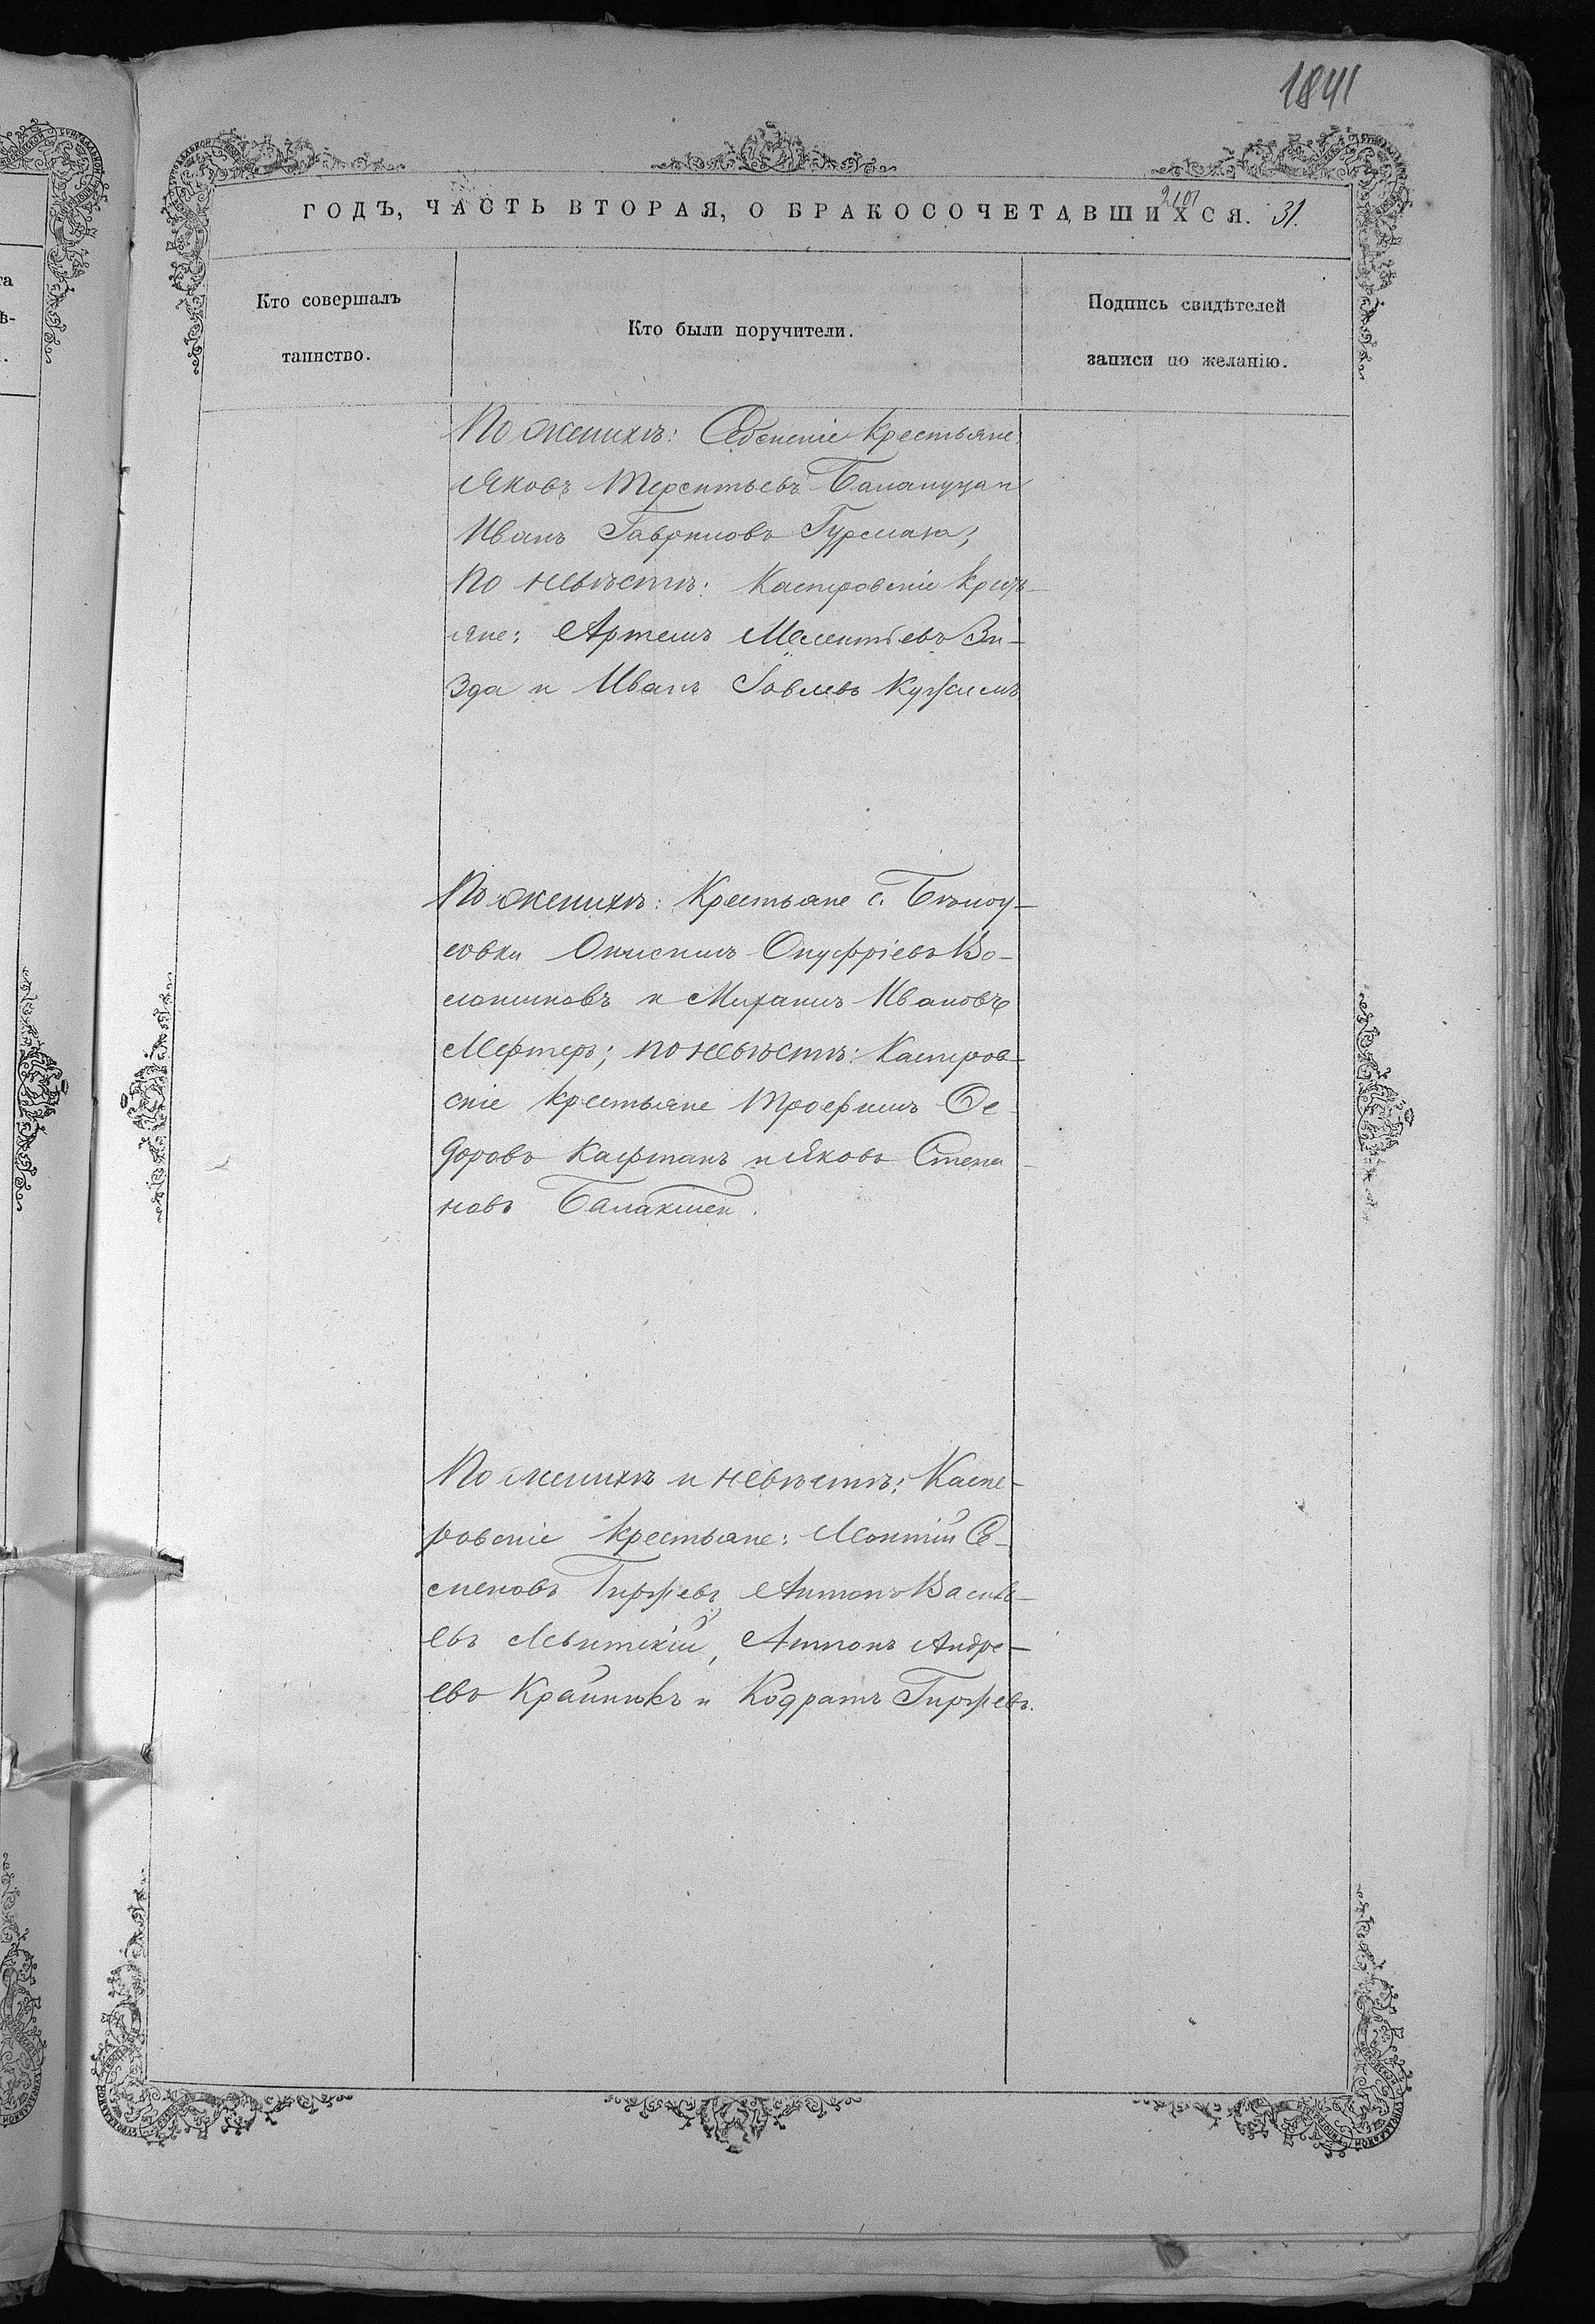 1841
ГОДЪ, ЧАСТЬ ВТОРАЯ, О БРАКОСОЧЕТАВШИХСЯ. 31.
2101
Кто совершалъ
таинство.
Кто были поручители.
Подпись свидѣтелей
записи по желанію.
По женихѣ: крестьяне:
Яковъ Терентьевъ Балануца и
Иванъ Гавриловъ Гурмака;
по невѣстѣ: Касперовскіе кресть-
яне: Артемъ Мелентьевъ Зи-
зда и Иванъ
По женихѣ: Крестьяне с. Бѣлоу-
совки Онисимъ Онуфріевъ Во-
лошиновъ и Михаилъ Ивановъ
Мефтеръ; по невѣстѣ: Касперов-
скіе крестьяне Трофимъ Ѳе
доровъ Кафтанъ и Яковъ Степа-
новъ Балакшей.
По женихѣ и невѣстѣ: Каспе-
ровскіе крестьяне: Леонтій Се-
меновъ Гиржевъ, Антонъ Василь-
евъ Левитскій, Антонъ Андре-
евъ Крайникъ и Кодратъ Гиржевъ.